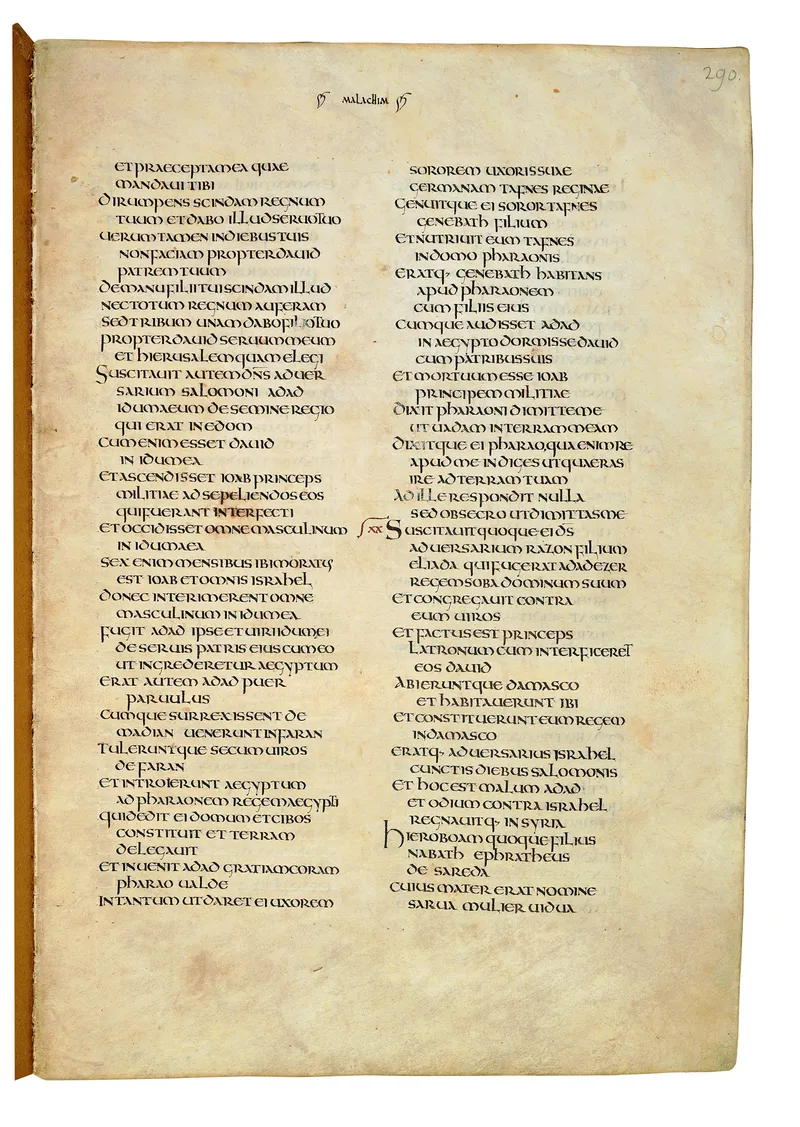 290.
MALACHIM
ET PRAECEPTA MEA QUAE
MANDAUI TIBI
DIRUMPENS SCINDAM REGNUM
TUUM ET DABO ILLUD SERUO TUO
UERUM TAMEN IN DIEBUS TUIS
NON FACIAM PROPTER DAUID
PATREM TUUM
DE MANU FILII TUI SCINDAM ILLUD
NEC TOTUM REGNUM AUFERAM
SED TRIBUM UNAM DABO FILIO TUO
PROPTER DAUID SERUUM MEUM
ET HIERUSALEM QUAM ELEGI
SUSCITAUIT AUTEM DN̄S ADUER
SARIUM SALOMONI ADAD
IDUMAEUM DE SEMINE REGIO
QUI ERAT IN EDOM
CUM ENIM ESSET DAUID
IN IDUMEA
ET ASCENDISSET IOAB PRINCEPS
MILITIAE AD SEPELIENDOS EOS
QUI FUERANT INTERFECTI
ET OCCIDISSET OMNE MASCULINUM
IN IDUMAEA
SEX ENIM MENSIBUS IBI MORATUS
EST IOAB ET OMNIS ISRAHEL
DONEC INTERIMERENT OMNE
MASCULINUM IN IDUMEA
FUGIT ADAD IPSE ET UIRI IDUMEI
DE SERUIS PATRIS EIUS CUM EO
UT INGREDERETUR AEGYPTUM
ERAT AUTEM ADAD PUER
PARUULUS
CUMQUE SURREXISSENT DE
MADIAN UENERUNT IN FARAN
TULERUNTQUE SECUM UIROS
DE FARAN
ET INTROIERUNT AEGYPTUM
AD PHARAONEM REGEM AEGYPTI
QUI DEDIT EI DOMUM ET CIBOS
CONSTITUIT ET TERRAM
DELEGAUIT
ET INUENIT ADAD GRATIAM CORAM
PHARAO UALDE
IN TANTUM UT DARET EI UXOREM
SOROREM UXORIS SUAE
GERMANAM TAFNES REGINAE
GENUITQUE EI SOROR TAFNES
GENEBATH FILIUM
ET NUTRIUIT EUM TAFNES
IN DOMO PHARAONIS
ERATQ· GENEBATH HABITANS
APUD PHARAONEM
CUM FILIIS EIUS
CUMQUE AUDISSET ADAD
IN AEGYPTO DORMISSE DAUID
CUM PATRIBUS SUIS
ET MORTUUM ESSE IOAB
PRINCIPEM MILITIAE
DIXIT PHARAONI DIMITTE ME
UT UADAM IN TERRAM MEAM
DIXITQUE EI PHARAO, QUA ENIM RE
APUD ME INDIGES UT QUAERAS
IRE AD TERRAM TUAM
AD ILLE RESPONDIT NULLA
SED OBSECRO UT DIMITTAS ME
XX SUSCITAUIT QUOQUE EI D̄S
ADUERSARIUM RAZON FILIUM
ELIADA QUI FUGERAT ADADEZER
REGEM SOBA DOMINUM SUUM
ET CONGREGAUIT CONTRA
EUM UIROS
ET FACTUS EST PRINCEPS
LATRONUM CUM INTERFICERET
EOS DAUID
ABIERUNTQUE DAMASCO
ET HABITAUERUNT IBI
ET CONSTITUERUNT EUM REGEM
IN DAMASCO
ERATQ· ADUERSARIUS ISRAHEL
CUNCTIS DIEBUS SALOMONIS
ET HOC EST MALUM ADAD
ET ODIUM CONTRA ISRAHEL
REGNAUITQ· IN SYRIA
HIEROBOAM QUOQUE FILIUS
NABATH EPHRATHEUS
DE SAREDA
CUIUS MATER ERAT NOMINE
SARUA MULIER UIDUA